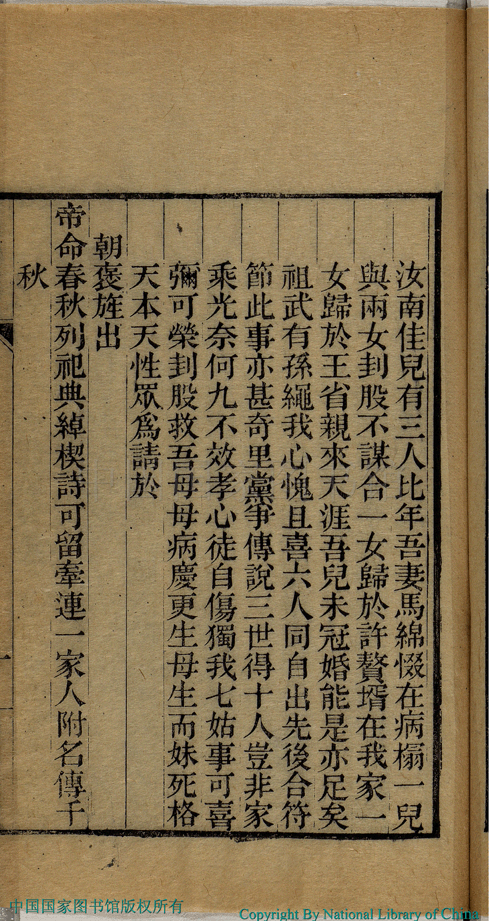 汝南佳兒有三人比年吾妻馬綿惙在病榻一兒
與兩女刲股不謀合一女歸於許贅壻在我家一
女歸於王省親來天涯吾兒未冠婚能是亦足矣
祖武有孫繩我心愧且喜六人同自出先後合符
節此事亦甚奇里黨爭傳說三世得十人豈非家
乘光奈何九不效孝心徒自傷獨我七姑事可喜
彌可榮刲股救吾母母病慶更生母生而妹死格
天本天性眾為請於
朝褒旌出
帝命春秋列祀典綽楔詩可留牽連一家人附名傳千
秋
中国国家图书馆版权所有
Copyright By National Library of China